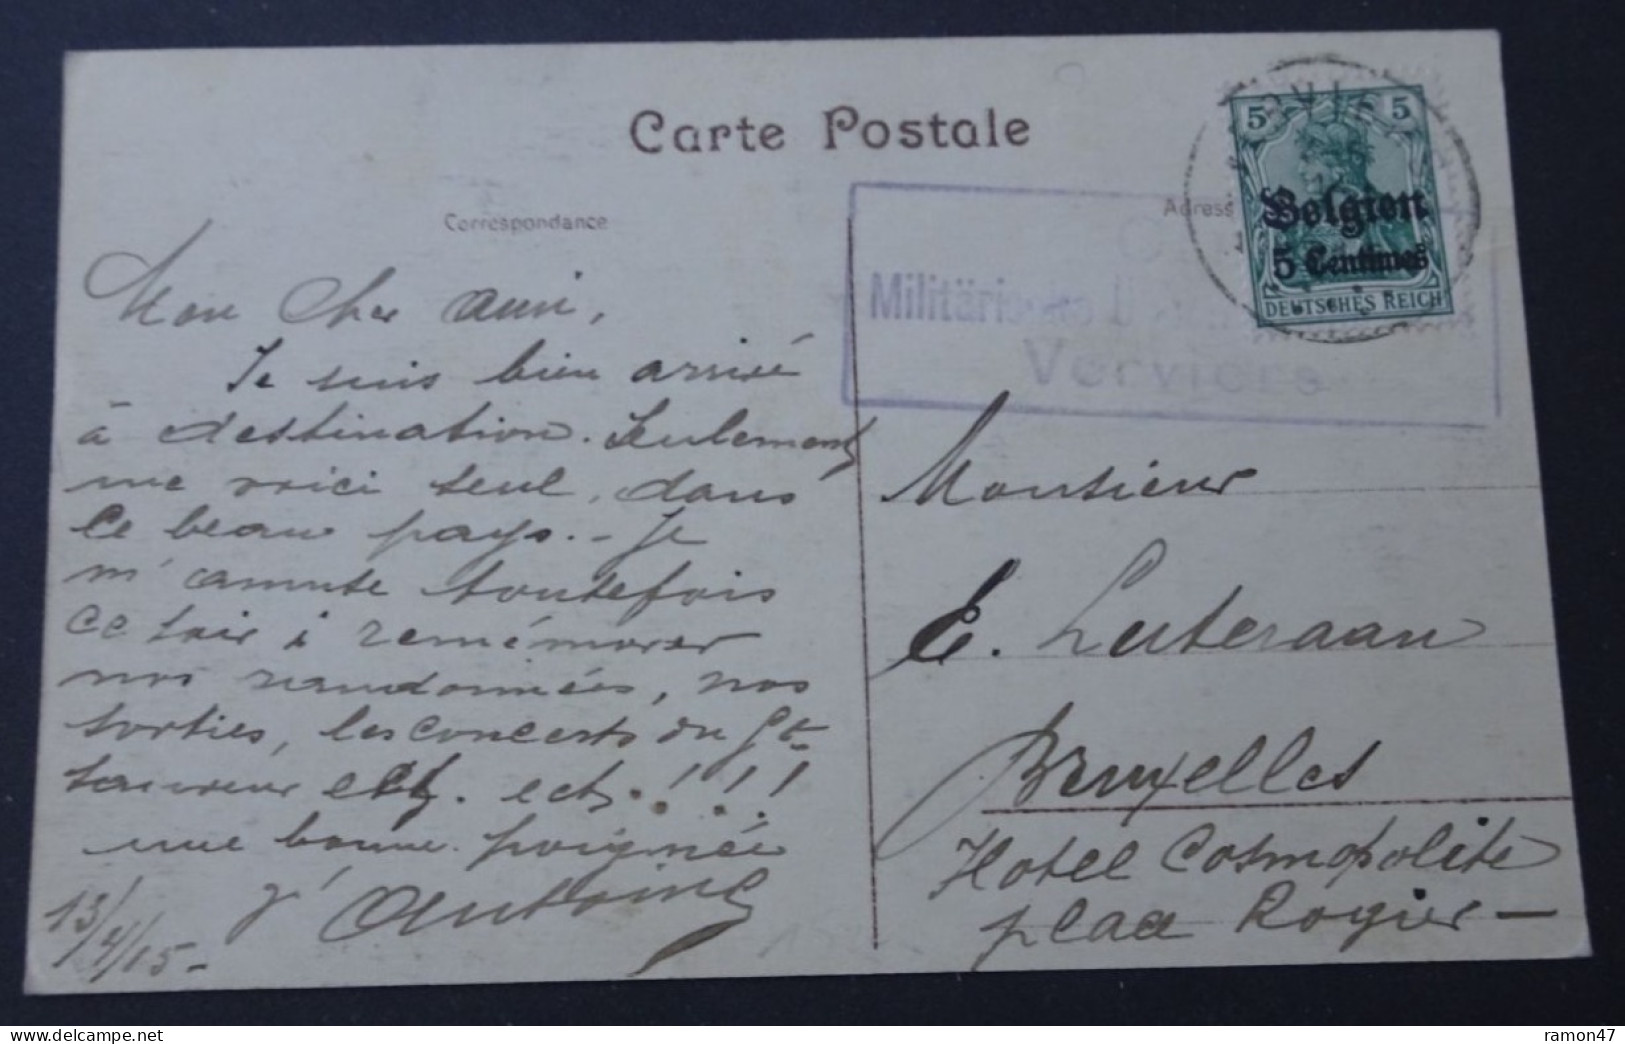 Carte Postale
Correspondance
Adresse
5 5
Belgien
5 Centimes
DEUTSCHES REICH
Militärische
Verviers
Mon cher ami,
Je suis bien arrivé
à destination. Seulement
me voici seul, dans
ce beau pays. - Je
m'amute toutefois
ce soir à remémorer
nos randonnées, nos
sorties, les concerts du Gt
ect. ect. !!!
une bonne poignée
d'Antoine
13/4/15 -
Monsieur
E. Luteraan
Bruxelles
Hotel Cosmopolite
place Rogier -
delcampe.net
ramon47